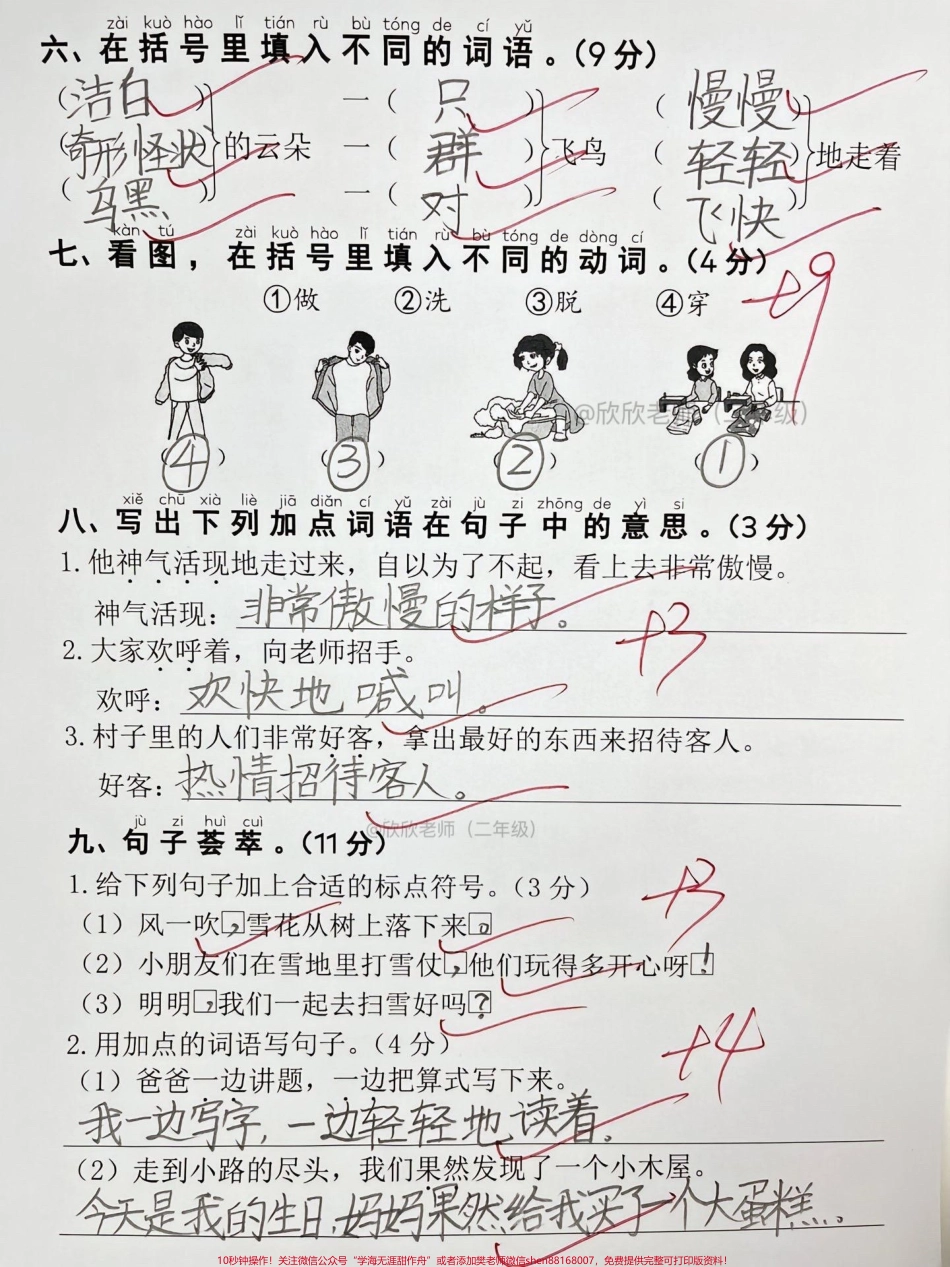 zài kuò hào lǐ tián rù bù tóng de cí yǔ
六、在括号里填入不同的词语。（9分）
（洁白） 一（只） （慢慢）
（奇形怪状）的云朵 一（群）飞鸟 （轻轻）地走着
（乌黑） 一（对） （飞快）
kàn tú zài kuò hào lǐ tián rù bù tóng de dòng cí
七、看图，在括号里填入不同的动词。（4分）
+9
①做 ②洗 ③脱 ④穿
@欣欣老师（二年级）
（④） （③） （②） （①）
xiě chū xià liè jiā diǎn cí yǔ zài jù zi zhōng de yì si
八、写出下列加点词语在句子中的意思。（3分）
1. 他神气活现地走过来，自以为了不起，看上去非常傲慢。
神气活现：非常傲慢的样子。
+3
2. 大家欢呼着，向老师招手。
欢呼：欢快地喊叫。
3. 村子里的人们非常好客，拿出最好的东西来招待客人。
好客：热情招待客人。
@欣欣老师（二年级）
jù zi huì cuì
九、句子荟萃。（11分）
1. 给下列句子加上合适的标点符号。（3分）
+3
（1）风一吹，雪花从树上落下来。
（2）小朋友们在雪地里打雪仗，他们玩得多开心呀！
（3）明明，我们一起去扫雪好吗？
2. 用加点的词语写句子。（4分）
+4
（1）爸爸一边讲题，一边把算式写下来。
我一边写字，一边轻轻地读着。
（2）走到小路的尽头，我们果然发现了一个小木屋。
今天是我的生日，妈妈果然给我买了一个大蛋糕。
10秒钟操作！关注微信公众号“学海无涯甜作舟”或者添加樊老师微信shen88168007，免费提供完整可打印版资料！